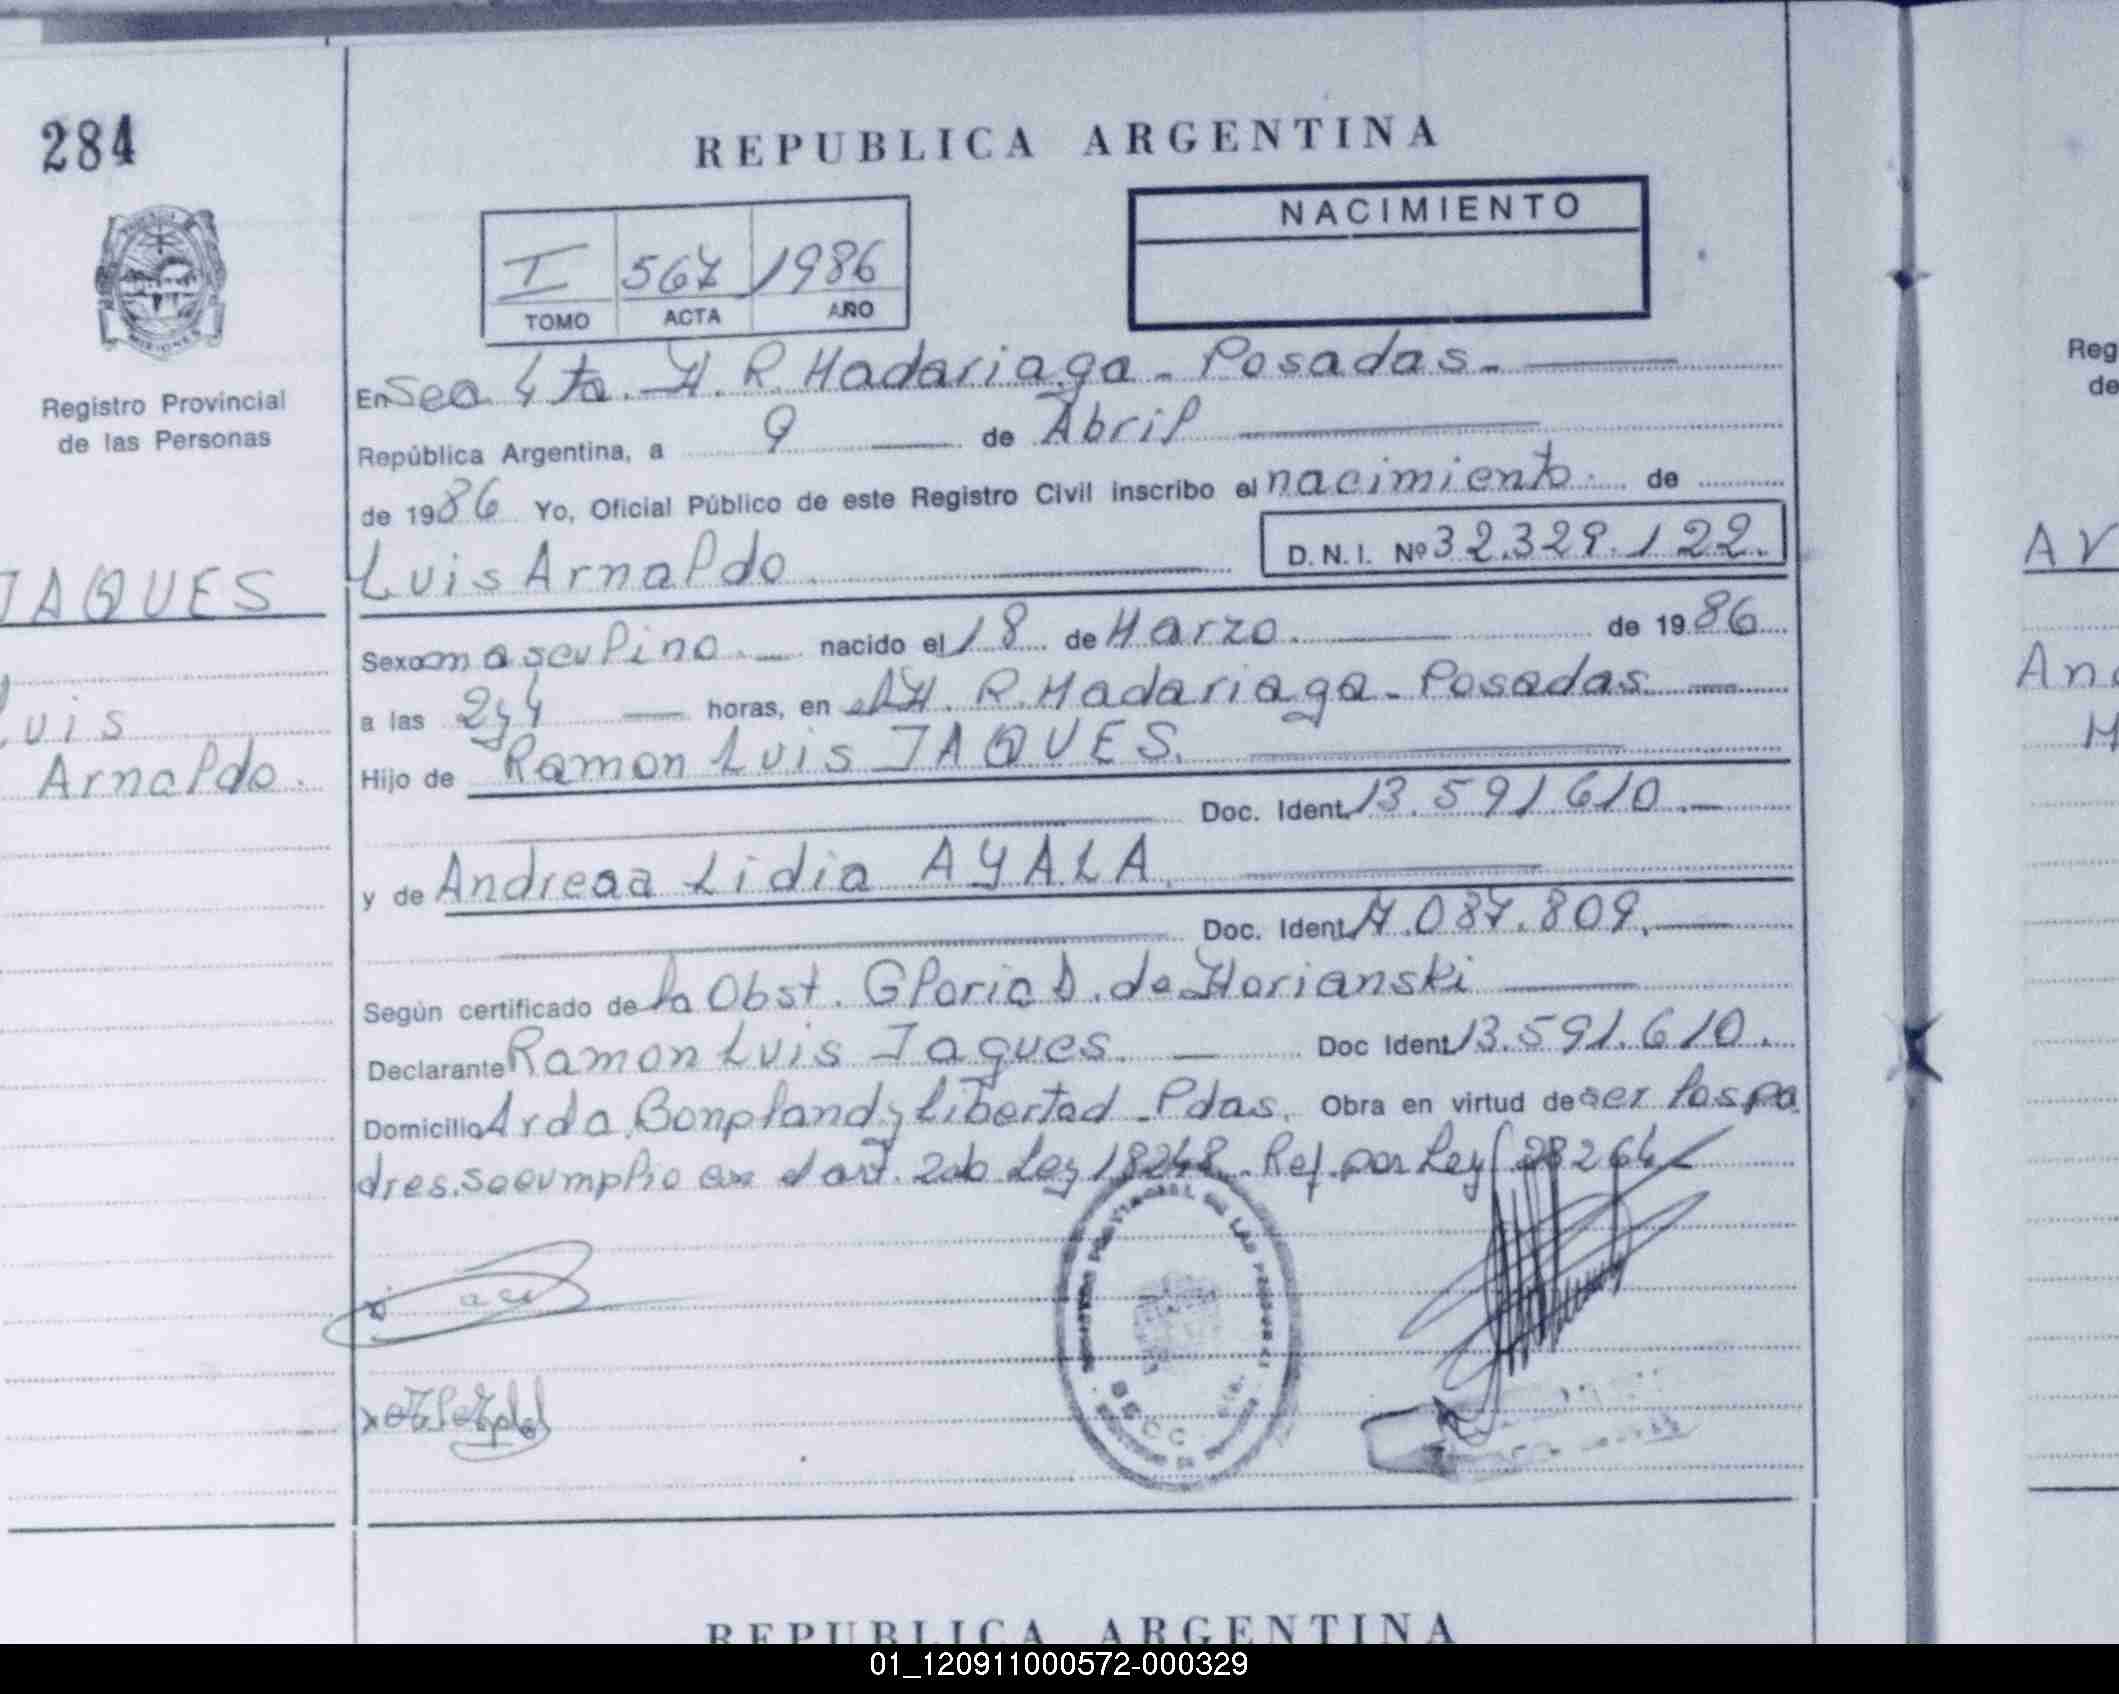 284
REPUBLICA ARGENTINA
NACIMIENTO
I 567 1986
TOMO ACTA AÑO
Registro Provincial
de las Personas
En Sec 4ta. H. R. Madariaga - Posadas -
República Argentina, a 9 de Abril
de 1986 Yo, Oficial Público de este Registro Civil inscribo el nacimiento de
Luis Arnaldo D.N.I. Nº 32.329.122.
JAQUES
Luis
Arnaldo.
Sexo masculino. nacido el 18 de Marzo. de 1986
a las 2y4 horas, en el H. R. Madariaga - Posadas
Hijo de Ramon Luis JAQUES.
Doc. Ident. 13.591.610.
y de Andreaa Lidia AYALA
Doc. Ident. .087.809.
Según certificado de la Obst. Gloria D. de
Declarante Ramon Luis Jaques. Doc Ident. 13.591.610.
Domicilio Avda. Bonpland y Libertad - Pdas. Obra en virtud de ser los pa
dres. Se cumplio el art. 2do Ley 18248. Ref. por Ley
REGISTRO PROVINCIAL DE LAS PERSONAS
SECC
Reg
de
AV
An
M
REPUBLICA ARGENTINA
01_120911000572-000329